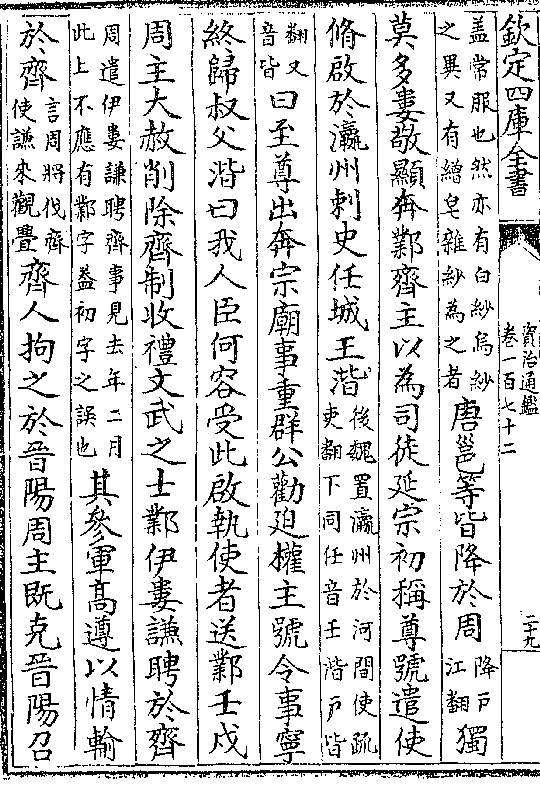 欽定四庫全書
資治通鑑
卷一百七十二
二十九
盖常服也然亦有白紗烏紗
之異又有繒皂雜紗為之者
唐邕等皆降於周
降戶
江翻
獨
莫多婁敬顯奔鄴齊主以為司徒延宗初稱尊號遣使
脩啟於瀛州刺史任城王湝
後魏置瀛州於河間使疏
吏翻下同任音壬湝戶皆
翻又
音皆
曰至尊出奔宗廟事重群公勸迫權主號令事寧
終歸叔父湝曰我人臣何容受此啟執使者送鄴壬戌
周主大赦削除齊制收禮文武之士鄴伊婁謙聘於齊
周遣伊婁謙聘齊事見去年二月
此上不應有鄴字葢初字之誤也
其參軍高遵以情輸
於齊
言周將伐齊
使謙來觀釁
齊人拘之於晉陽周主既克晉陽召